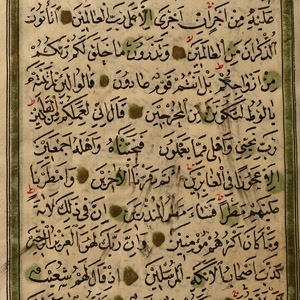 عليه من اجر ان اجرى الا على رب العالمين اتاتون
الذكران من العالمين وتذرون ما خلق لكم ربكم
من ازواجكم بل انتم قوم عادون قالوا لئن لم تنته
يا لوط لتكونن من المخرجين قال انى لعملكم من القالين
رب نجنى واهلى مما يعملون فنجيناه واهله اجمعين
الا عجوزا فى الغابرين ثم دمرنا الاخرين وامطرنا
عليهم مطرا فساء مطر المنذرين ان فى ذلك لاية
وما كان اكثرهم مؤمنين وان ربك لهو العزيز الرحيم
كذب اصحاب لئيكة المرسلين اذ قال لهم شعيب